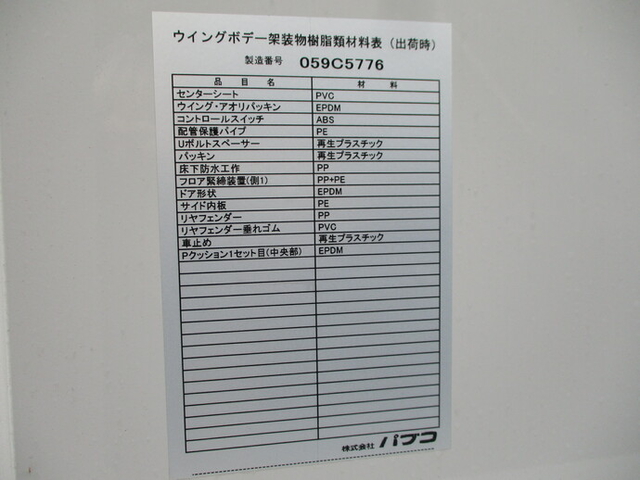 ウイングボデー架装物樹脂類材料表（出荷時）
製造番号 059C5776
品目名 材料
センターシート PVC
ウイング・アオリパッキン EPDM
コントロールスイッチ ABS
配管保護パイプ PE
Uボルトスペーサー 再生プラスチック
パッキン 再生プラスチック
床下防水工作 PP
フロア緊締装置(側1) PP+PE
ドア形状 EPDM
サイド内板 PE
リヤフェンダー PP
リヤフェンダー垂れゴム PVC
車止め 再生プラスチック
Pクッション1セット目(中央部) EPDM
株式会社 パブコ